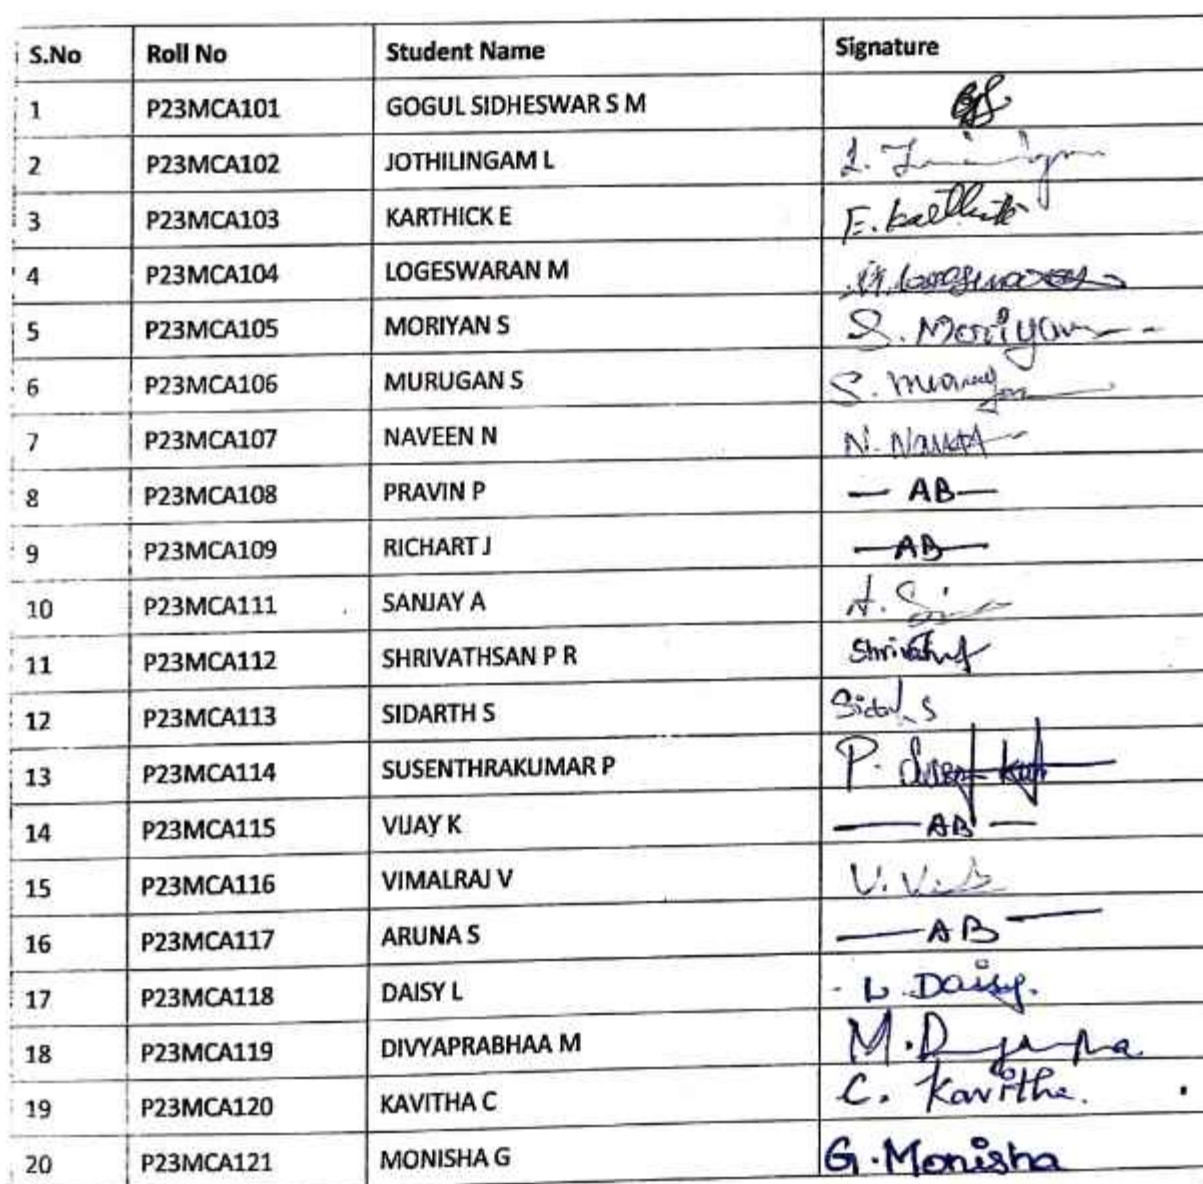 S.No Roll No Student Name Signature
1 P23MCA101 GOGUL SIDHESWAR S M
2 P23MCA102 JOTHILINGAM L
3 P23MCA103 KARTHICK E E. Karthick
4 P23MCA104 LOGESWARAN M
5 P23MCA105 MORIYAN S S. Moriyan
6 P23MCA106 MURUGAN S S.
7 P23MCA107 NAVEEN N N.
8 P23MCA108 PRAVIN P — AB —
9 P23MCA109 RICHART J — AB —
10 P23MCA111 SANJAY A A.
11 P23MCA112 SHRIVATHSAN P R
12 P23MCA113 SIDARTH S
13 P23MCA114 SUSENTHRAKUMAR P P.
14 P23MCA115 VIJAY K — AB —
15 P23MCA116 VIMALRAJ V V.
16 P23MCA117 ARUNA S — AB —
17 P23MCA118 DAISY L L. Daisy.
18 P23MCA119 DIVYAPRABHAA M M.
19 P23MCA120 KAVITHA C C. Kavitha.
20 P23MCA121 MONISHA G G. Monisha